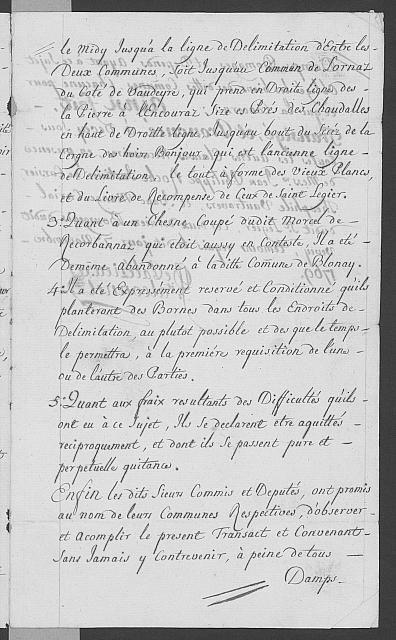 le Midy Jusqu'a la ligne de Delimitation d'Entre les
Deux Communes, Soit Jusqu'au Commun de Lornaz
du Coté de Vaudeyre, qui prend en Droite ligne, des
la Pierre à l'Encouraz Size es Prés des Chaudalles
en haut de Droitte ligne Jusqu'au bout du Scez de la
Cergne des hoirs Bonjour, qui est l'ancienne ligne
de Delimitation, le tout à forme des Vieux Plancs,
et du Livre de Recompense de Ceux de Saint Legier.
3.° Quant à un Chesne Coupé dudit Morcel de
Recorbannaz que etoit aussy en Conteste, Il a eté
Demême abandonné à la ditte Comune de Blonay.
4.° Il a été Expressement reservé et Conditionné qu'ils
planteront des Bornes dans tous les Endroits de
Delimitation, au plutot possible et des que le temps
le permettra, à la premiére requisition de l'une
ou de l'autre des Parties.
5.° Quant aux fraix resultants des Difficultés qu'ils
ont eu à ce Sujet, Ils se declarent etre aquittés
reciproquement, et dont ils se passent pure et
perpetuelle quitance.
Enfin les dits Sieurs Commis et Deputés, ont promis
au nom de leurs Communes Respectives, d'observer
et Acomplir le present Transact et Convenant
Sans Jamais y Contrevenir, à peine de tous
Damps